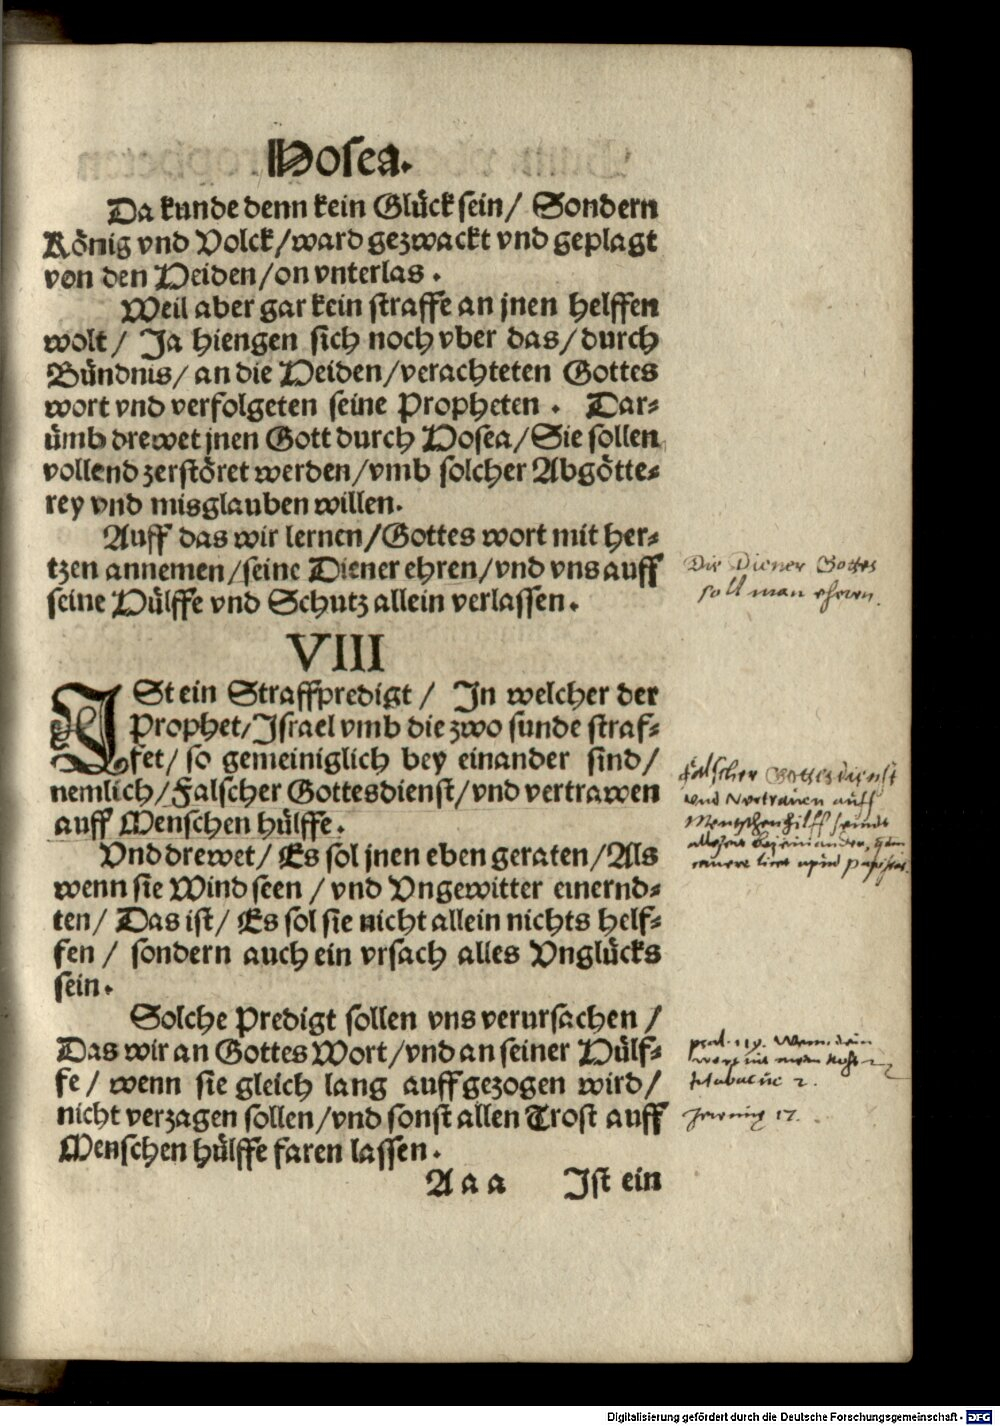 Hosea.
Da kunde denn kein Glück sein/ Sondern
König vnd Volck/ward gezwackt vnd geplagt
von den Heiden/on vnterlas.
Weil aber gar kein straffe an jnen helffen
wolt/ Ja hiengen sich noch vber das/durch
Bündnis/an die Heiden/verachteten Gottes
wort vnd verfolgeten seine Propheten. Dar-
ümb drewet jnen Gott durch Hosea/Sie sollen
vollend zerstöret werden/vmb solcher Abgötte-
rey vnd misglauben willen.
Auff das wir lernen/Gottes wort mit her-
tzen annemen/seine Diener ehren/vnd vns auff
seine Hülffe vnd Schutz allein verlassen.
Die Diener Gottes
soll man ehren.
VIII
ISt ein Straffpredigt/ In welcher der
Prophet/Israel vmb die zwo sunde straf-
fet/ so gemeiniglich bey einander sind/
nemlich/Falscher Gottesdienst/vnd vertrawen
auff Menschen hülffe.
Falscher Gottesdienst
und Vertrauen auff
Menschenhilff seindt
Vnd drewet/ Es sol jnen eben geraten/Als
wenn sie Wind seen/ vnd Vngewitter einernd-
ten/ Das ist/ Es sol sie nicht allein nichts helf-
fen/ sondern auch ein vrsach alles Vnglücks
sein.
Solche Predigt sollen vns verursachen/
Das wir an Gottes Wort/vnd an seiner Hülf-
fe/ wenn sie gleich lang auffgezogen wird/
nicht verzagen sollen/vnd sonst allen Trost auff
Menschen hülffe faren lassen.
psal. 119. Wenn dein
2.
17.
A a a Ist ein
Digitalisierung gefördert durch die Deutsche Forschungsgemeinschaft - DFG